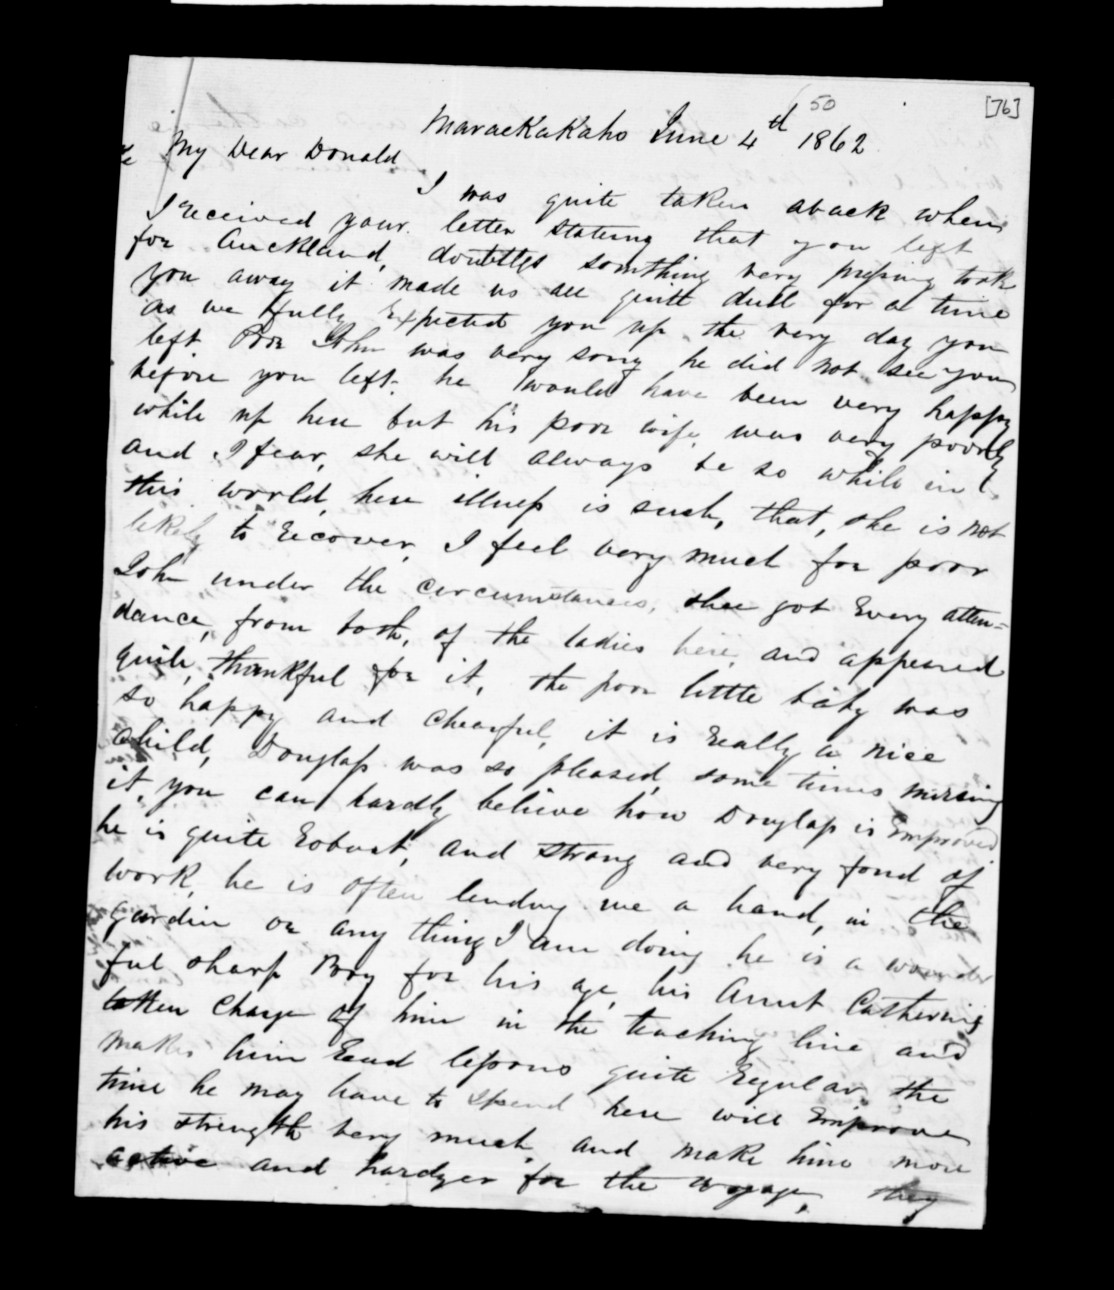 50
[76]
MaraeKaKaho June 4th 1862
My Dear Donald
I was quite taken aback when
I received your letter stating that you left
for Auckland, doubtless somthing very pressing took
you away it made us all quite dull for a time
as we fully Expected you up the very day you
left Poor John was very sorry he did not see you
before you left. he would have been very happy
while up here but his poor wife, was very poorly
and I fear, she will always be so while in
this world, here illness is such, that, she is not
likely to recover, I feel very much for poor
John under the circumstances, shee got Every atten=
dance, from both, of the ladies here, and appeared
quite, thankful for it, the poor little baby was
so happy and chearful, it is really a nice
child, Douglass was so pleased, some times nursing
it, you can hardly believe how Douglass is Emproved
he is quite robust, and strong and very fond of
work he is often lending me a hand, in the
gardin or any thing I am doing he is a wounder
ful sharp Boy for his age, his Aunt Catherine
taken charge of him in the teaching line and
makes him read lessons quite regular, the
time he may have to spend here will Emprove
his strength very much and make him more
active and hardyer for the voyage, they